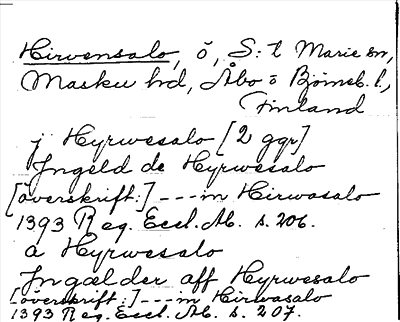 Hirvensalo, ö, S:t Marie sn,
Masku hd, Åbo o Björneb. l.,
Finland
j Hyrwesalo [2 ggr]
Jngeld de Hyrwesalo
[överskrift:] --- m Hirwasalo
1393 Reg. Eccl. Ab. s. 206.
a Hyrwesalo
Jngælder aff Hyrwesalo
[överskrift:] --- m Hirwasalo
1393 Reg. Eccl. Ab. s. 207.